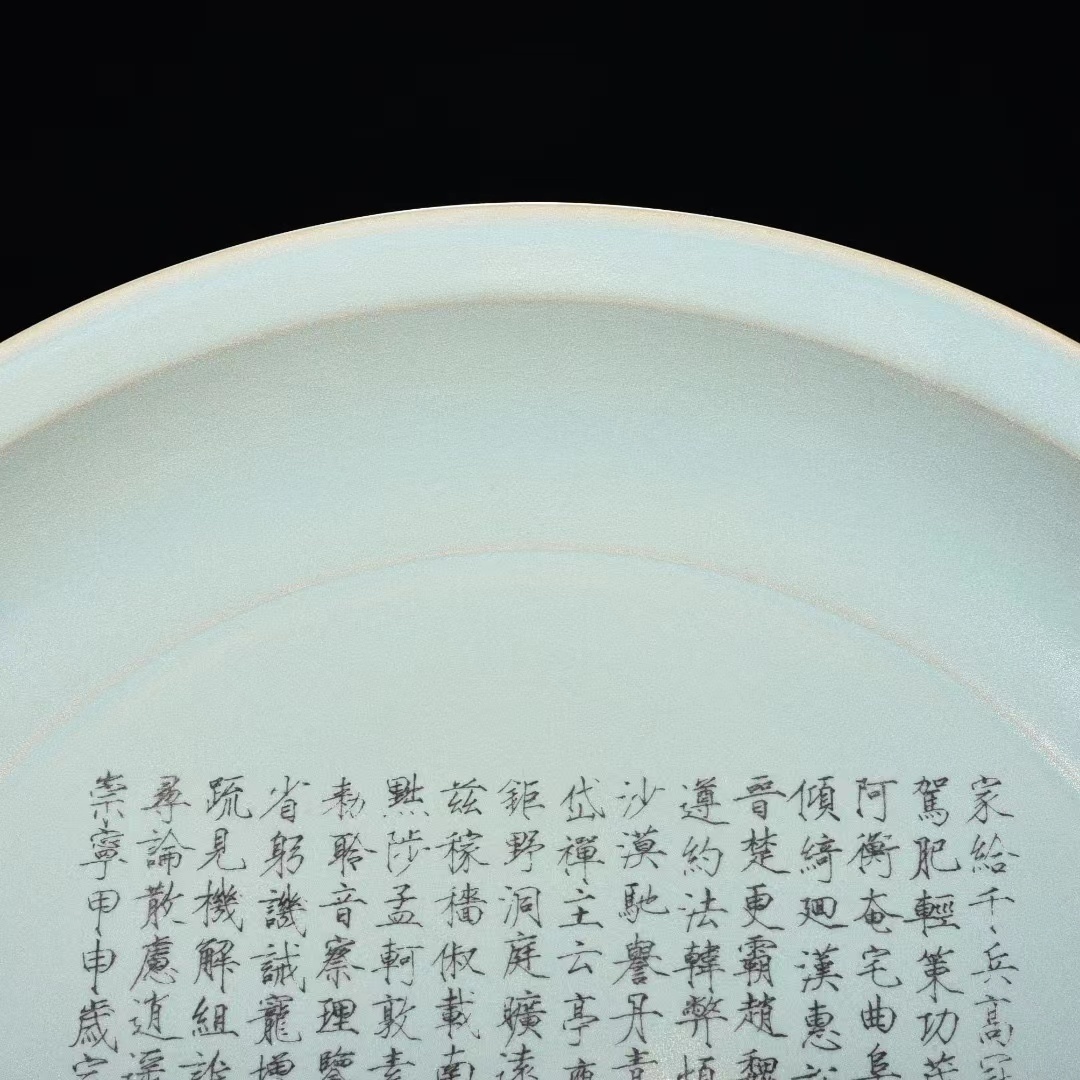 家給千兵高冠
駕肥輕策功
阿衡奄宅曲阜
傾綺廻漢惠
晉楚更霸趙魏
遵約法韓弊煩
沙漠馳譽丹青
岱禪主云亭
鉅野洞庭曠遠
茲稼穡俶載南
黜陟孟軻敦素
勅聆音察理鑒
省躬譏誡寵增
疏見機解組誰
尋論散慮逍遥
崇寧甲申歲